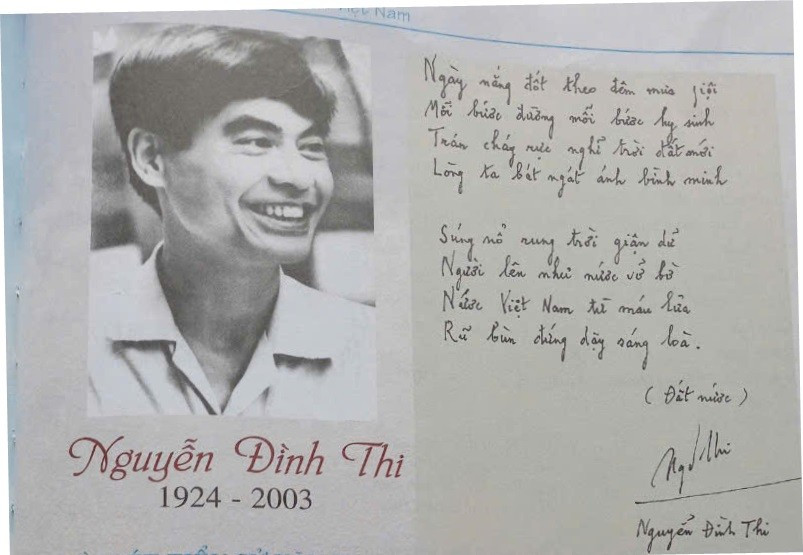 Việt Nam
Ngày nắng đốt theo đêm mưa giội
Mỗi bước đường mỗi bước hy sinh
Trán cháy rực nghĩ trời đất mới
Lòng ta bát ngát ánh bình minh
Súng nổ rung trời giận dữ
Người lên như nước vỡ bờ
Nước Việt Nam từ máu lửa
Rũ bùn đứng dậy sáng loà.
( Đất nước )
Nguyễn Đình Thi
Nguyễn Đình Thi
1924 - 2003